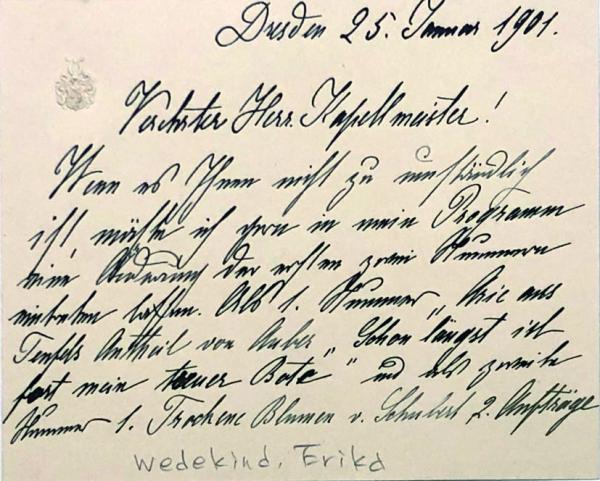 Dresden 25. Januar 1901.
Verehrter Herr Kapellmeister!
Wenn es Ihnen nicht zu umständlich
ist, möchte ich gern in mein Programm
eine Änderung der ersten zwei Nummern
eintreten lassen. Als 1. Nummer „Arie aus
Teufels Antheil von Auber „Schon längst ich
fort mein treuer Bote" und als zweite
Nummer 1. Trockene Blumen v. Schubert 2. Aufträge
Wedekind, Erika